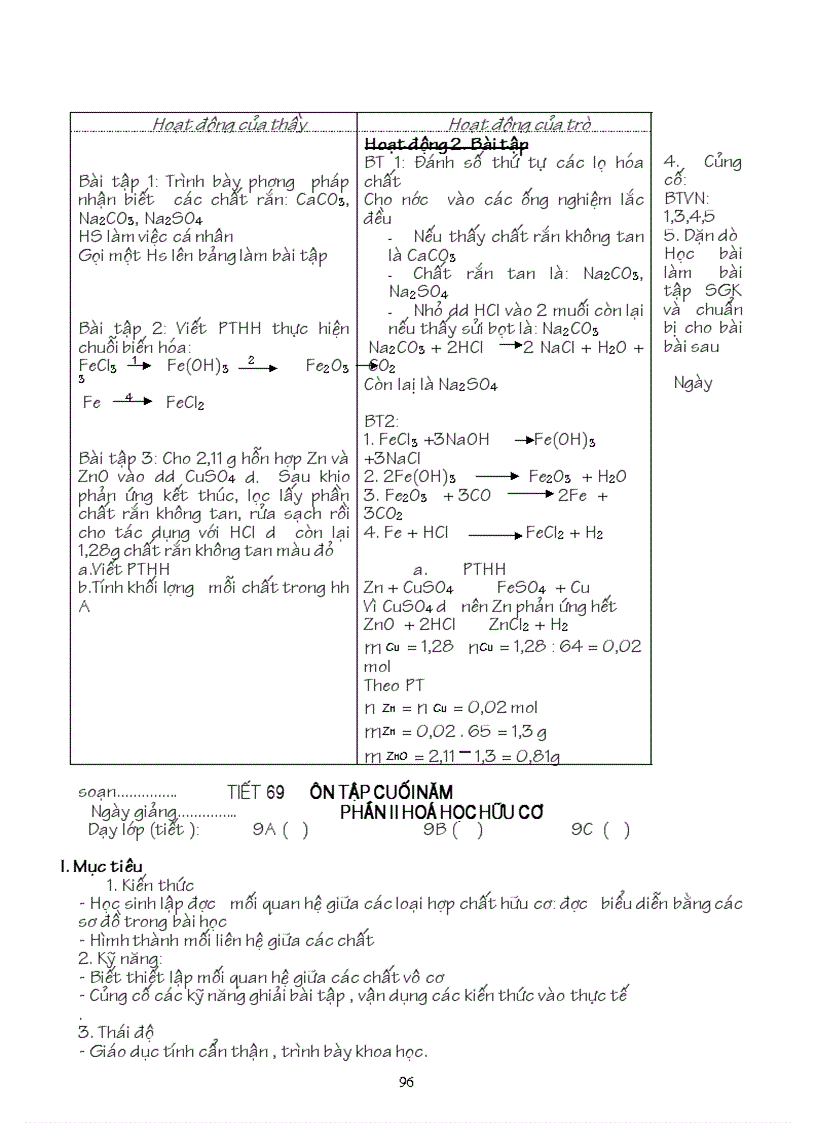 Hoạt động của thầy
Hoạt động của trò
Bài tập 1: Trình bày phơng pháp
nhận biết các chất rắn: CaCO3,
Na2CO3, Na2SO4
HS làm việc cá nhân
Gọi một Hs lên bảng làm bài tập
Bài tập 2: Viết PTHH thực hiện
chuỗi biến hóa:
FeCl3 1→ Fe(OH)3 2→ Fe2O3 →
3
Fe 4→ FeCl2
Bài tập 3: Cho 2,11 g hỗn hợp Zn và
ZnO vào dd CuSO4 d. Sau khio
phản ứng kết thúc, lọc lấy phần
chất rắn không tan, rửa sạch rồi
cho tác dụng với HCl d còn lại
1,28g chất rắn không tan màu đỏ
a.Viết PTHH
b.Tính khối lợng mỗi chất trong hh
A
Hoạt động 2. Bài tập
BT 1: Đánh số thứ tự các lọ hóa
chất
Cho nớc vào các ống nghiệm lắc
đều
- Nếu thấy chất rắn không tan
là CaCO3
- Chất rắn tan là: Na2CO3,
Na2SO4
- Nhỏ dd HCl vào 2 muối còn lại
nếu thấy sủi bọt là: Na2CO3
Na2CO3 + 2HCl → 2 NaCl + H2O +
CO2
Còn laị là Na2SO4
BT2:
1. FeCl3 +3NaOH → Fe(OH)3
+3NaCl
2. 2Fe(OH)3 → Fe2O3 + H2O
3. Fe2O3 + 3CO → 2Fe +
3CO2
4. Fe + HCl → FeCl2 + H2
a. PTHH
Zn + CuSO4 FeSO4 + Cu
Vì CuSO4 d nên Zn phản ứng hết
ZnO + 2HCl ZnCl2 + H2
m Cu = 1,28 nCu = 1,28 : 64 = 0,02
mol
Theo PT
n Zn = n Cu = 0,02 mol
mZn = 0,02 . 65 = 1,3 g
m ZnO = 2,11 – 1,3 = 0,81g
4. Củng
cố:
BTVN:
1,3,4,5
5. Dặn dò
Học bài
làm bài
tập SGK
và chuẩn
bị cho bài
bài sau
Ngày
soạn...............
TIẾT 69 ÔN TẬP CUỐI NĂM
Ngày giảng...............
PHẦN II HOÁ HỌC HỮU CƠ
Dạy lớp (tiết ): 9A ( ) 9B ( ) 9C ( )
I. Mục tiêu
1. Kiến thức
- Học sinh lập đợc mối quan hệ giữa các loại hợp chất hữu cơ: đợc biểu diễn bằng các
sơ đồ trong bài học
- Hìmh thành mối liên hệ giữa các chất
2. Kỹ năng:
- Biết thiết lập mối quan hệ giữa các chất vô cơ
- Củng cố các kỹ năng ghiải bài tập , vận dụng các kiến thức vào thực tế
.
3. Thái độ
- Giáo dục tính cẩn thận , trình bày khoa học.
96